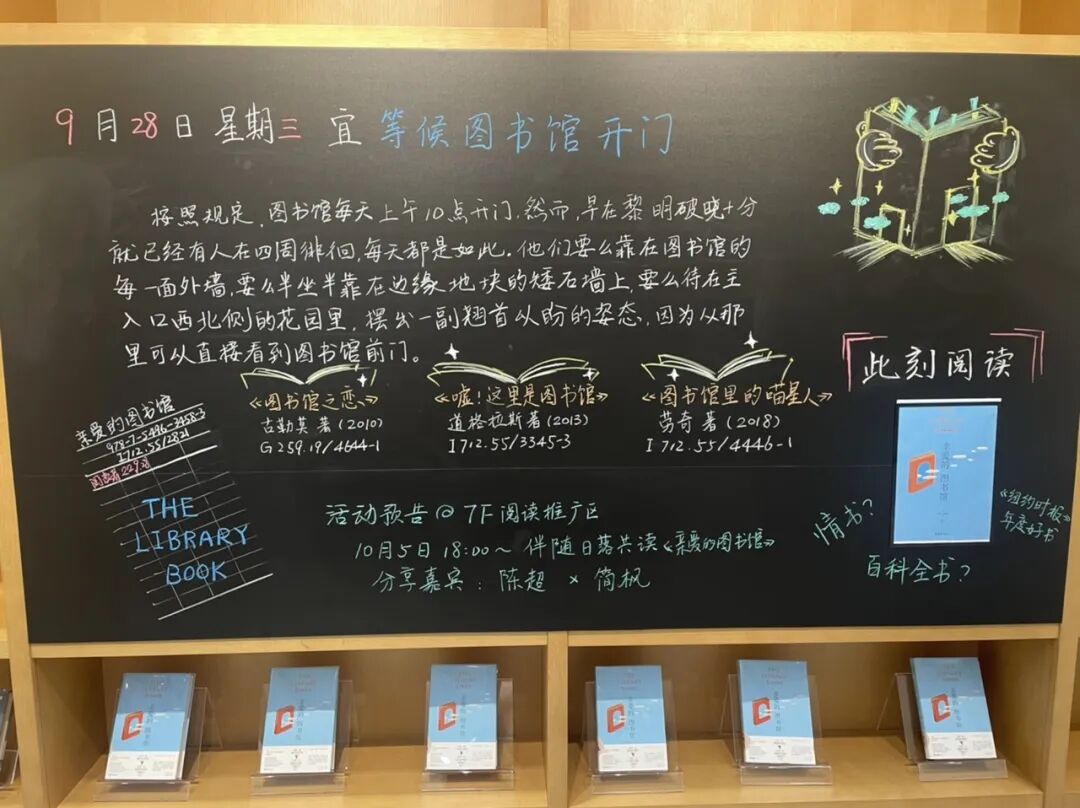 9月28日 星期三 宜 等候图书馆开门
按照规定,图书馆每天上午10点开门.然而,早在黎明破晓十分
就已经有人在四周徘徊,每天都是如此.他们要么靠在图书馆的
每一面外墙,要么半坐半靠在边缘地块的矮石墙上,要么待在主
入口西北侧的花园里,摆出一副翘首以盼的姿态,因为从那
里可以直接看到图书馆前门。
《图书馆之恋》
古勒莫著(2010)
G259.19/4644-1
《嘘!这里是图书馆》
道格拉斯著(2013)
I712.55/3345-3
《图书馆里的喵星人》
劳奇著(2018)
I712.55/4446-1
亲爱的图书馆
978-7-5496-3458-3
I712.55/2821
THE
LIBRARY
BOOK
活动预告@7F阅读推广区
10月5日18:00~ 伴随日落共读《亲爱的图书馆》
分享嘉宾:陈超 × 简枫
此刻阅读
亲爱的图书馆
情书?
《纽约时报》
年度好书
百科全书?